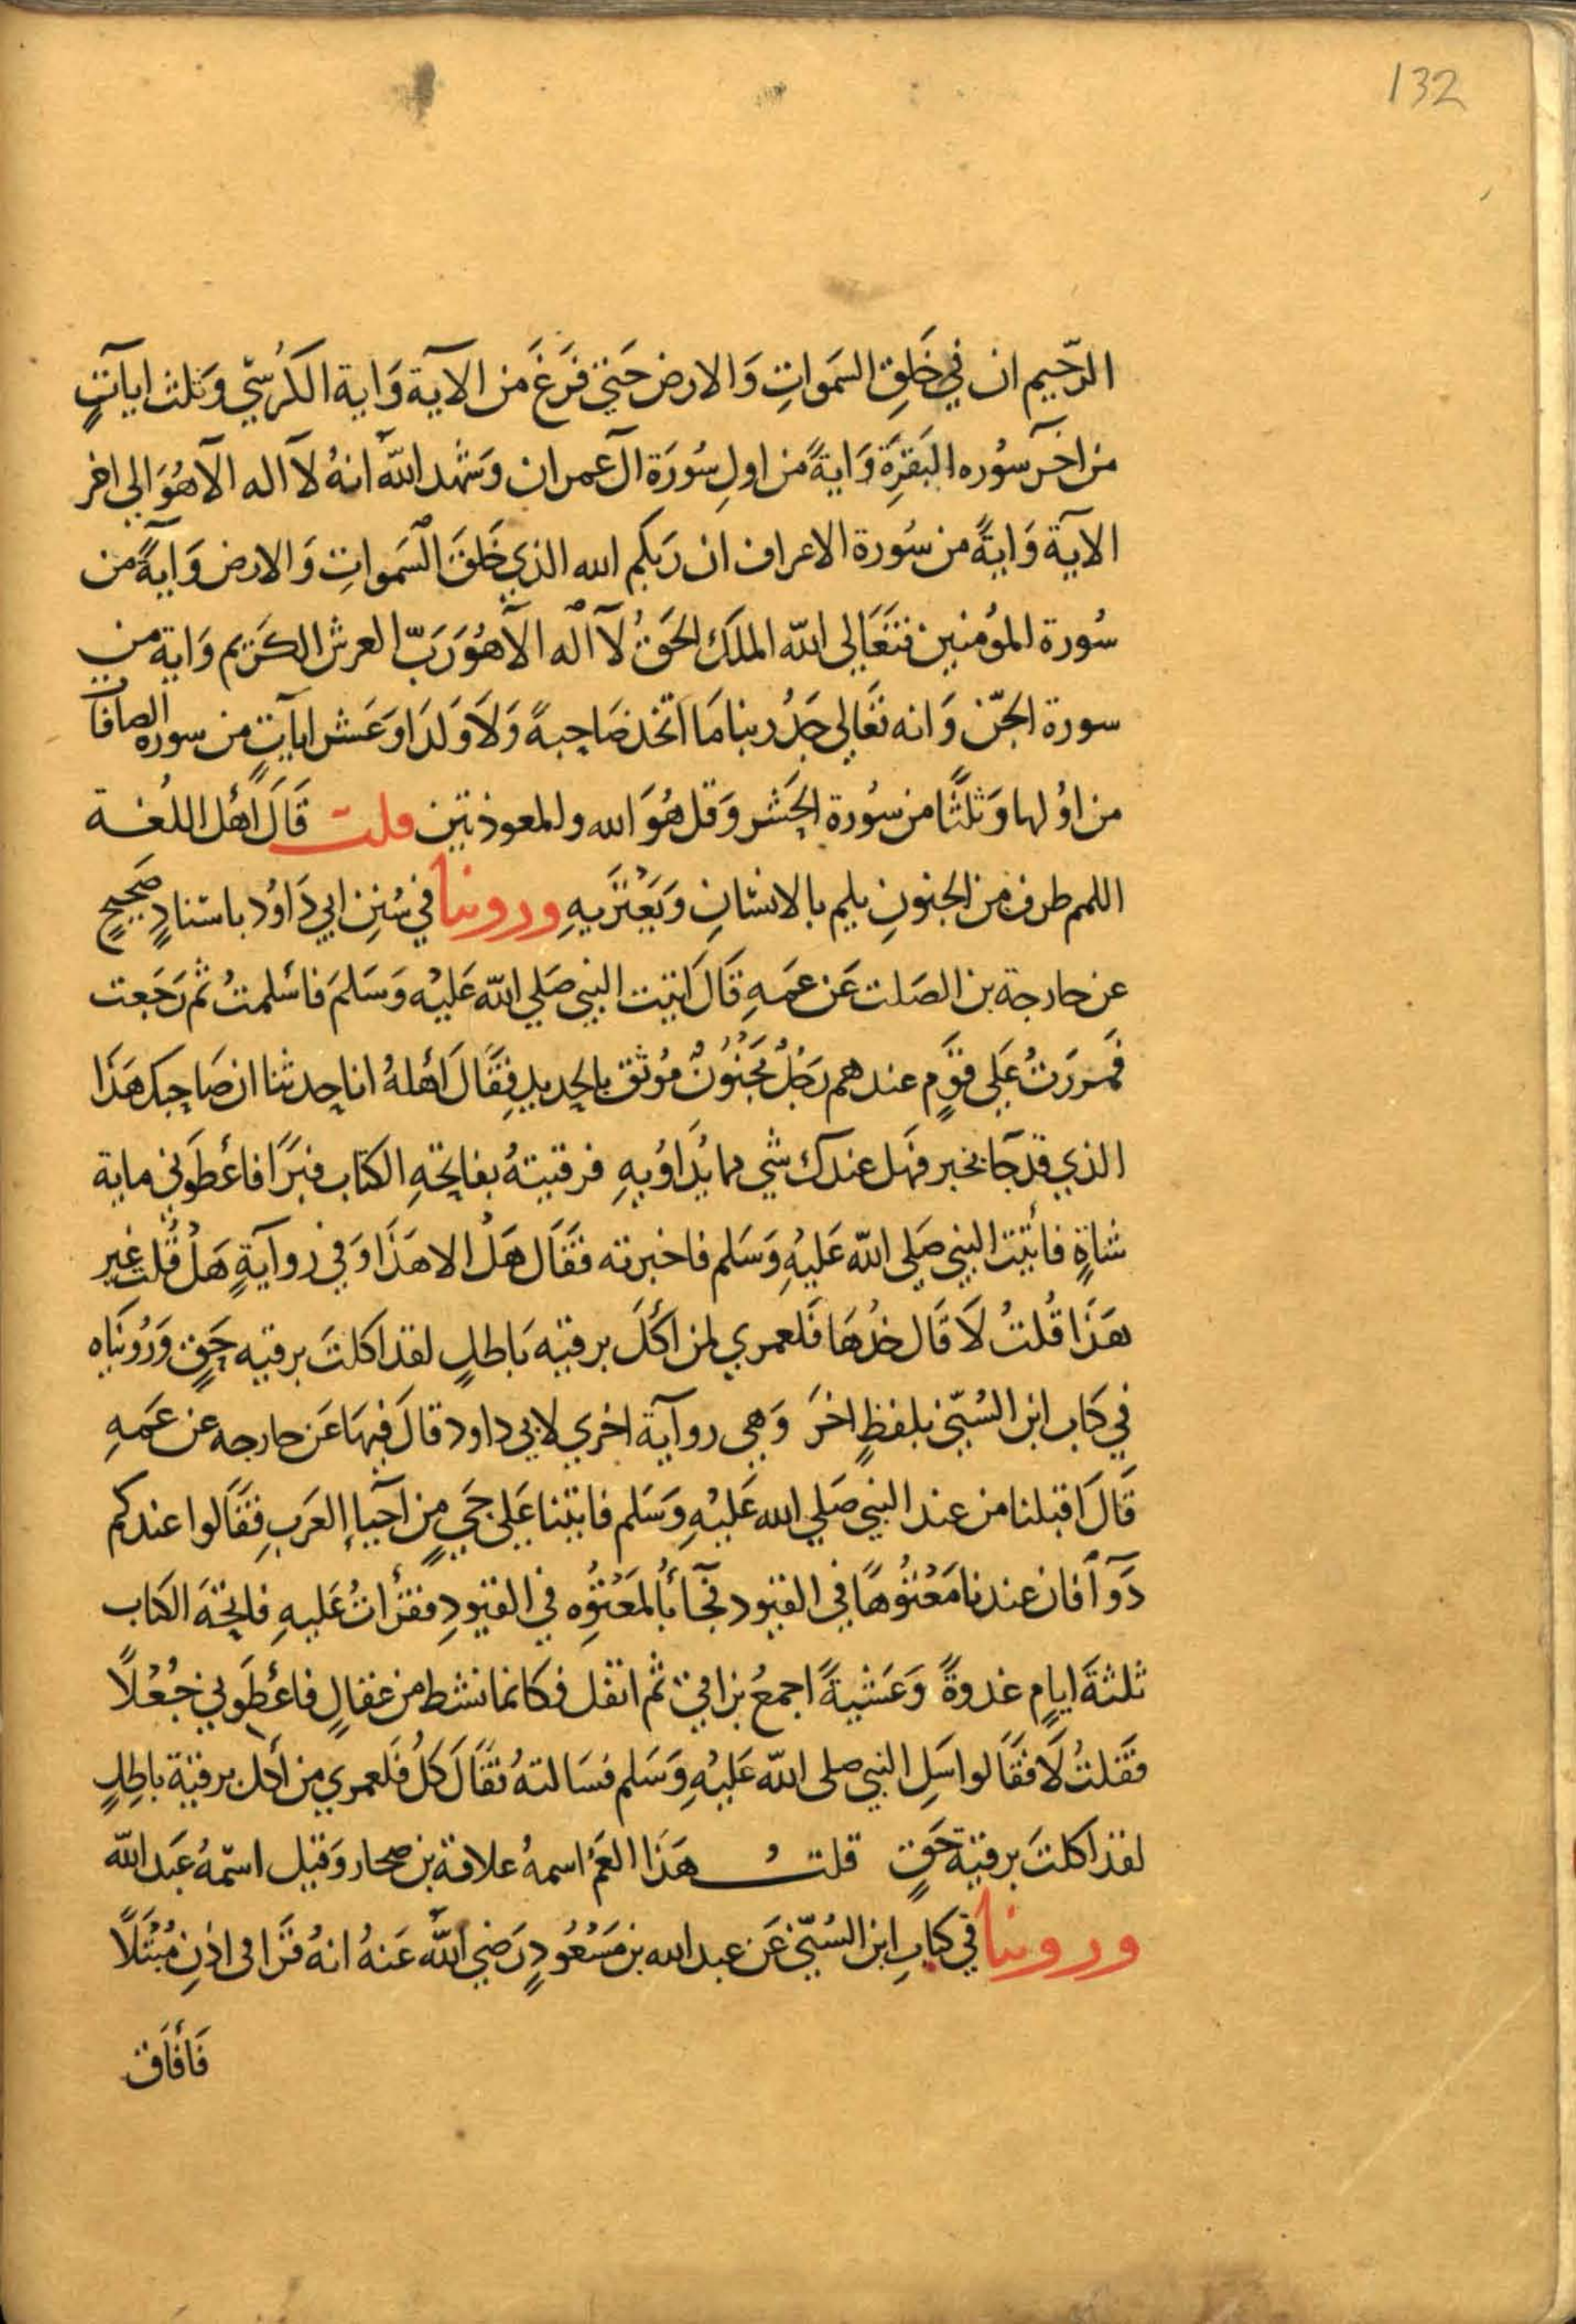 132
الرّحيم ان في خَلِق السَموَاتِ وَالارض حَتي فَرَغَ مَن الآية وَاية الكرُسّي وَثلث ايآتٍ
من اخر سوُره البَقرَة وَايةً من اولِ سُورَة آل عمران وَشهد اللّه انهُ لآاله الآهُوَ الى اخر
الآية وَايةً من سُورة الاعراف ان رَبكم الله الذي خَلقَ السَموَاتِ وَالارض وَآيةً من
سُورة المؤمنين فتعَالى اللّه الملَك الحَقُ لآاله الآهُوَ رَبّ العرش الكَريم وَاية من
سورة الجّن وَانه تعَالى جَدُ ربنا مَا اتخذ صَاحبةً وَلاَ وَلدَا وَعَشر ايآتٍ من سوره الصافآ
من اوُلها وَثلثًا من سوُرة الحَشر وَقل هُوَ الله والمعوذتين قلت قَالَ أهل اللُغة
اللمم طرف من الجنونِ يلم بالانسَانِ وَيَعْترَيهِ وروينا في سُنِن ابي دَاوُد باسْنادٍ صَحيحٍ
عن خارجة بن الصَلت عَن عمَهِ قَالَ اتيت النبي صَلي اللّه عَليْه وَسَلمَ فاسْلمتُ ثم رَجَعت
فمررَتُ عَلى قوَمٍ عندهم رَجُلُ مجَنُونٌ مُوثق بالحديدِ فقَالَ أهلهُ انا حدثنا ان صَاحبك هَذا
الذي قد جَا بخير فهَل عندك شي مما يُدَاوُيهِ فرقيتهُ بفاتحةِ الكتاب فبرَا فاعطَوني ماية
شاةٍ فاتيت النبي صَلى اللّه عَليْهِ وَسَلم فاخبرته فقَال هَل الا هَذا وَفي روآيةٍ هَلْ قُلت غير
هَذا قُلتُ لاَ قَال خذُهَا فَلعمري لمن اكَلَ برقيَة بَاطلٍ لقد اكلتَ برقيه حَقٍ وَرُوينَاه
في كَاب ابن السُنّي بلفظٍ اخرَ وَهي روآية اخري لابي داود قالَ فيهَا عَن خارجه عن عَمَهِ
قَالَ اقبلنا من عند النبي صَلي الله عَليْهِ وَسَلم فاتينا عَلى حَيٍ مِن آحيآءِ العَربِ فقَالوا عندكم
دَوآ فان عندنا مَعْتوُهًا في القيود فجآئا بالمَعْتوُه في القيودِ فقرأتُ عَليهِ فاتحَة الكاب
ثلثةَ ايامٍ غدوةً وَعَشيةً اجمعُ بزاقي ثم اتفل فكانما نشط من عقالٍ فاعْطَوني جُعْلاً
فقَلتُ لاَ فقَالوا سَلِ النبي صلى اللّه عَليْهِ وَسَلم فسَالتهُ فقَالَ كَلُ فَلعمري من أكل برقيَة باطلٍ
لقد اكلتَ برقيَة حَقٍ قلتُ هَذا العَمَ اسمهُ علاقة بن صحار وَقيل اسمهُ عَبد اللّه
وروينا في كتابِ ابن السُنّي عَن عبد الله بن مَسْعُودٍ رَضي اللّه عَنهُ انهُ قرَا في اذنِ مُبْتَلاً
فأفَاق